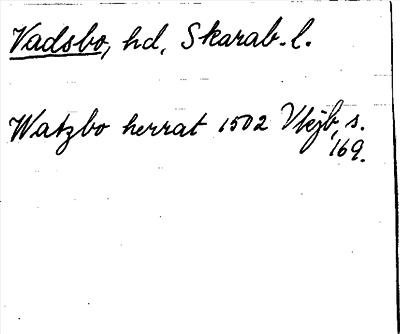 Vadsbo, hd, Skarab. l.
Watzbo herrat 1502 Vkjb, s.
169.